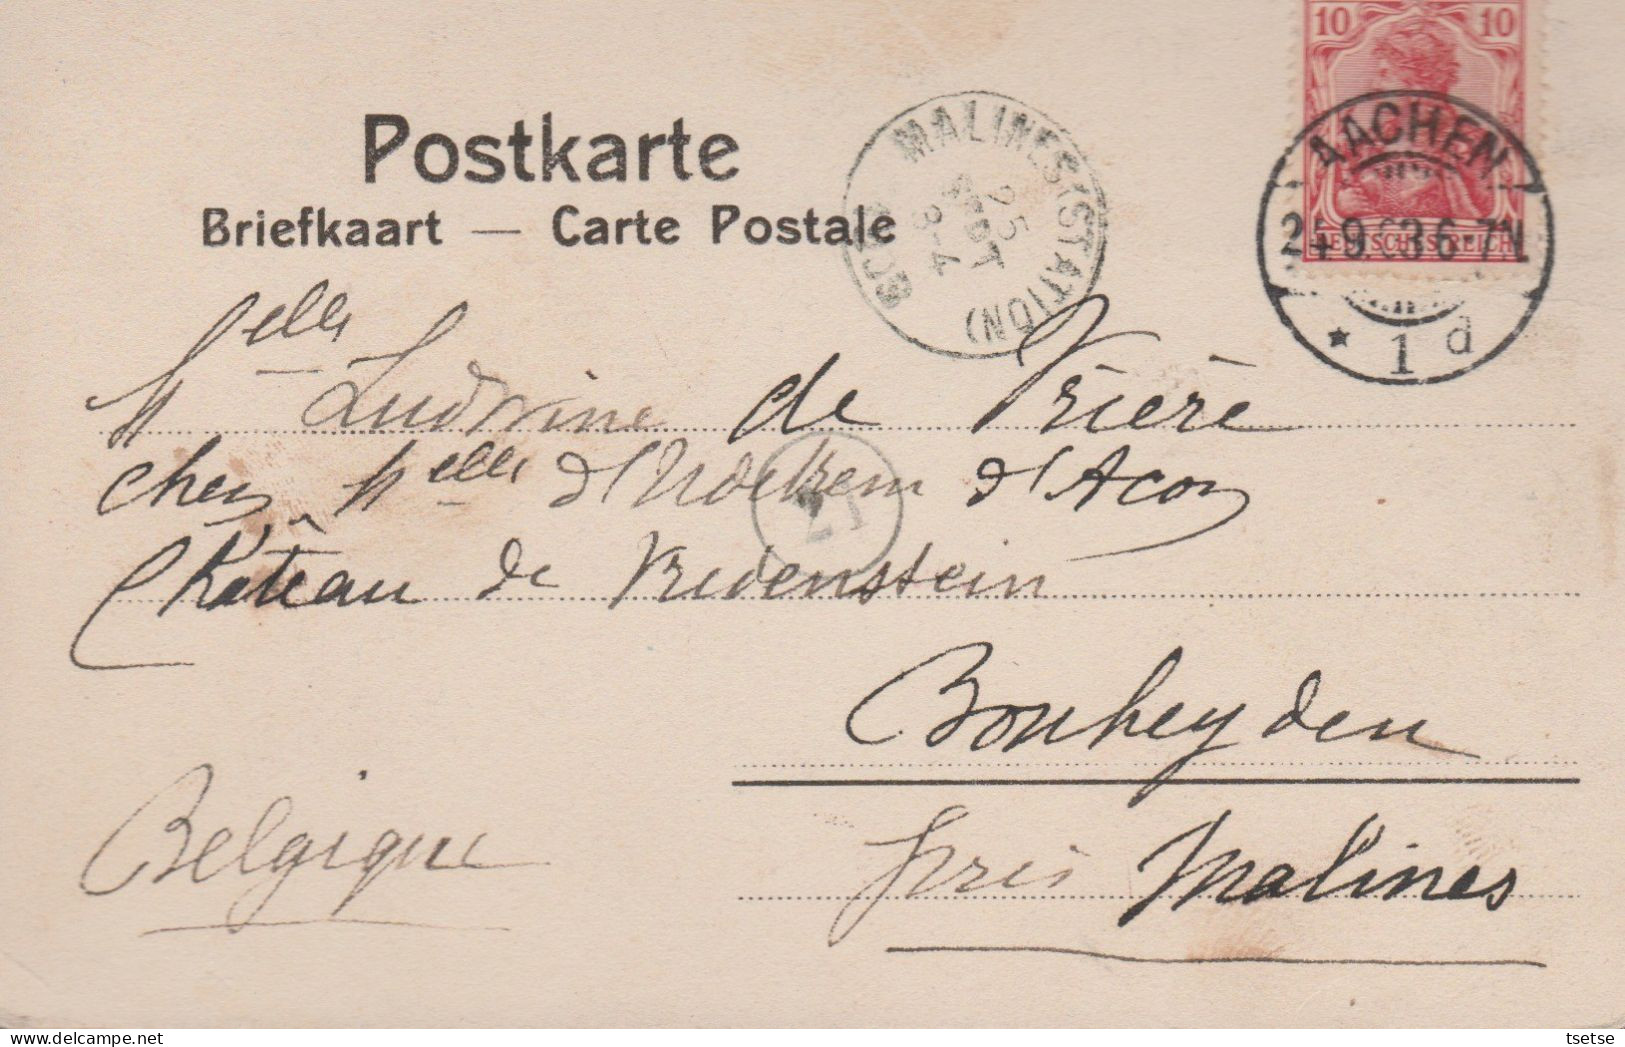 10 10
Postkarte
Briefkaart — Carte Postale
MALINES (STATION)
25
SEPT
3-4
1903
AACHEN
24.9.03.6-7N
DEUTSCHES REICH
* 1 d
Melle Ludwine de Trière
chez Melle d'Udekem d'Acoz
Château de Vredenstein
21
Bonheyden
près Malines
Belgique
tsetse
www.delcampe.net